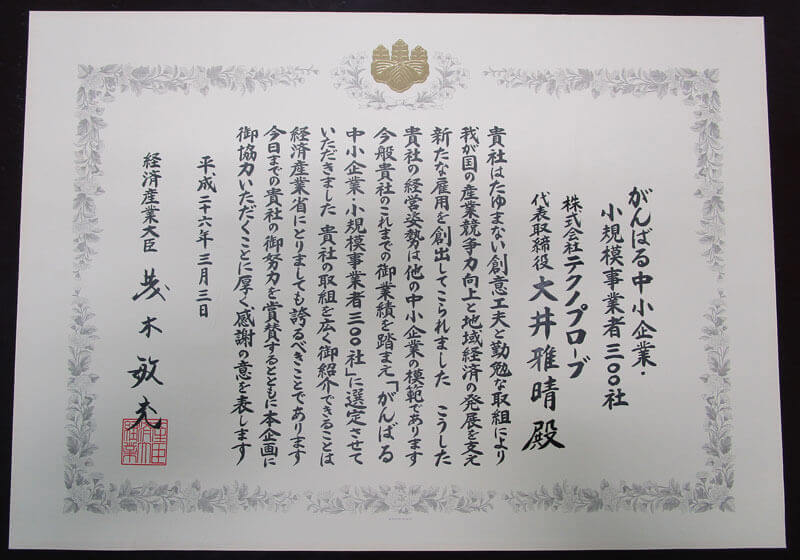 がんばる中小企業・
小規模事業者三〇〇社
株式会社テクノプローブ
代表取締役 大井雅晴 殿
貴社はたゆまない創意工夫と勤勉な取組により
我が国の産業競争力向上と地域経済の発展を支え
新たな雇用を創出してこられました こうした
貴社の経営姿勢は他の中小企業の模範であります
今般貴社のこれまでの御業績を踏まえ「がんばる
中小企業・小規模事業者三〇〇社」に選定させて
いただきました 貴社の取組を広く御紹介できることは
経済産業省にとりましても誇るべきことであります
今日までの貴社の御努力を賞賛するとともに本企画に
御協力いただくことに厚く、感謝の意を表します
平成二十六年三月三日
経済産業大臣 茂木敏充